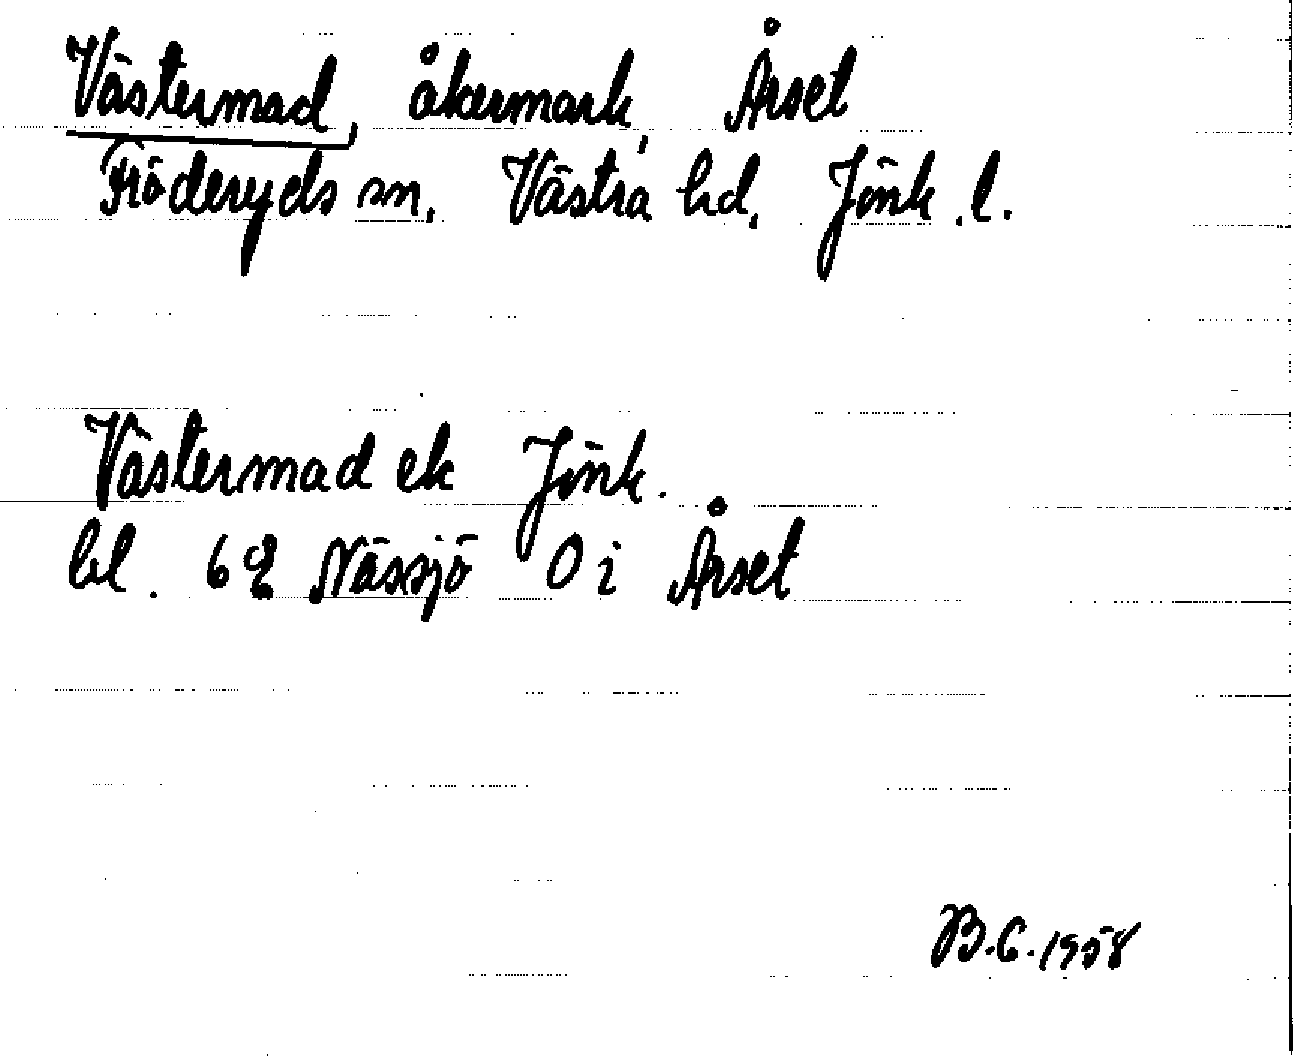 Västermad, åkermark, Årset
Fröderyds sn, Västra hd, Jönk.l.
Västermad ek Jönk.
bl. 62 Nässjö O i Årset
B.G.1958